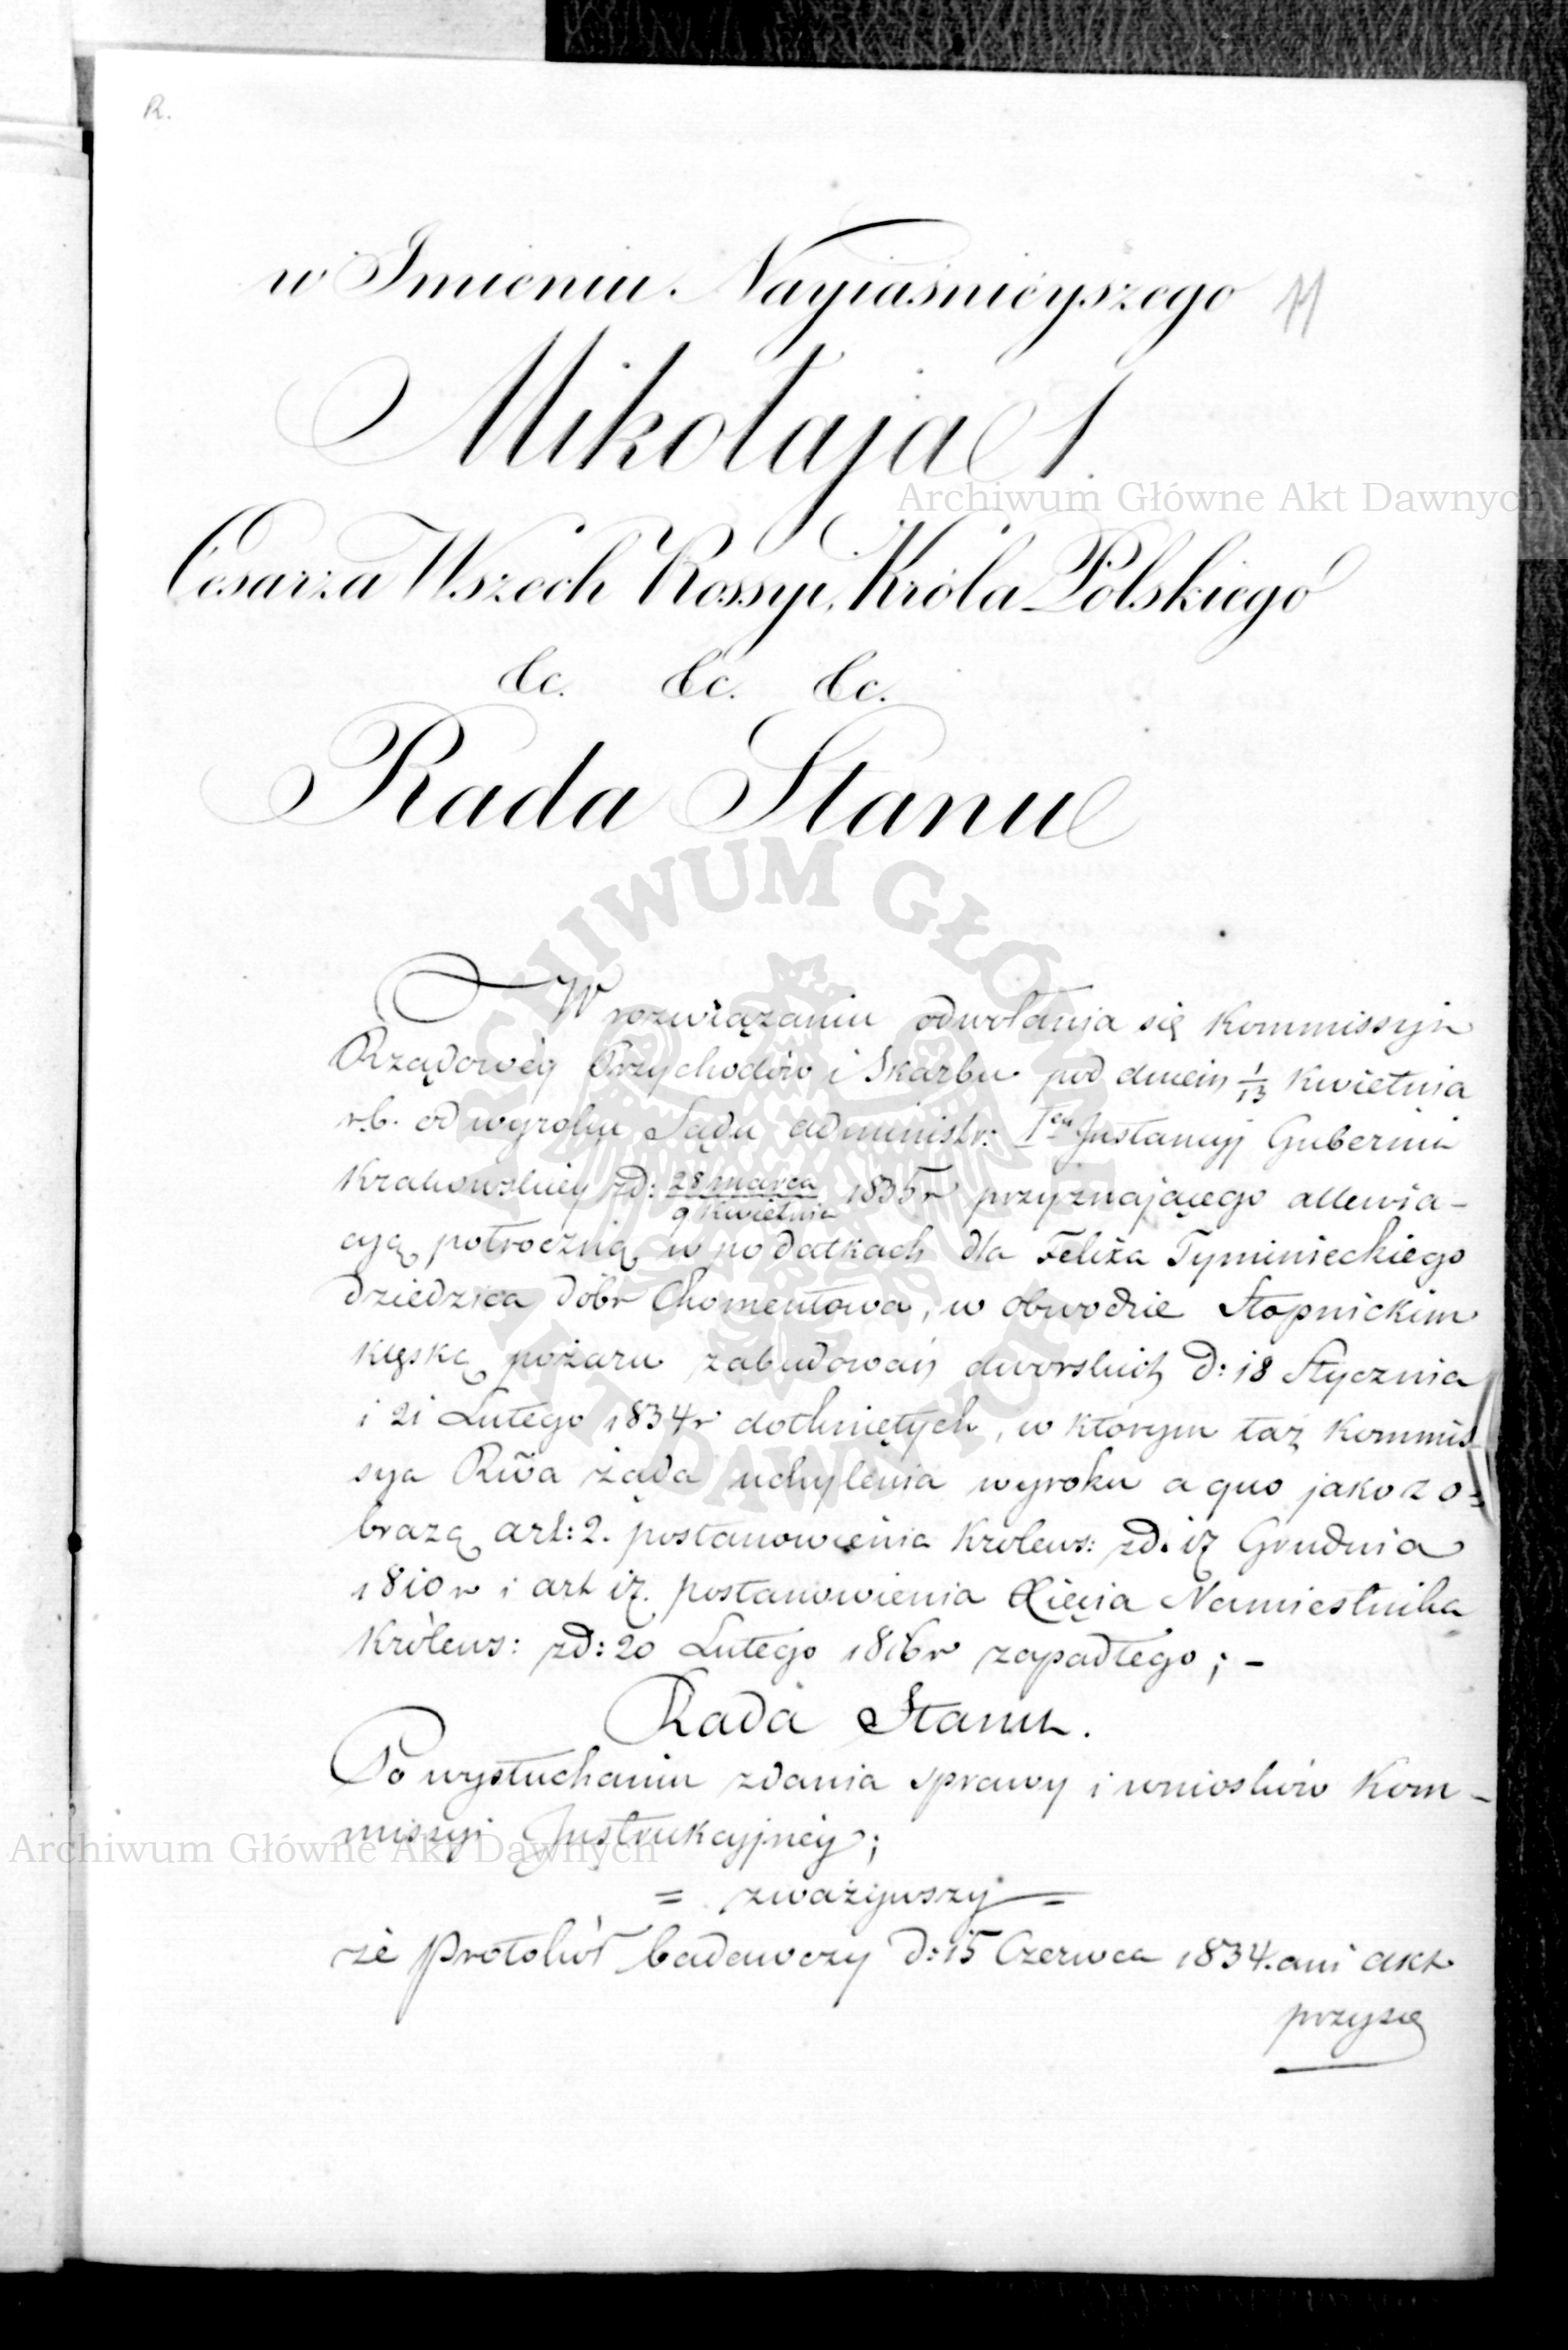 R.
w Imieniu Nayiaśnieyszego 11
Mikołaja I.
Cesarza Wszech Rossyi, Króla Polskiego
&c. &c. &c.
Rada Stanu
W rozwiązaniu odwołania się Kommissyi
Rządowéy Przychodów i Skarbu pod dniem 1/13 Kwietnia
r.b. od wyroku Sądu administr: Iey Instancyj Gubernii
Krakowskiey zd: 28 marca / 9 Kwietnia 1835r przyznającego allewia-
cyą półroczną w podatkach dla Felixa Tyminieckiego
dziedzica dóbr Chomentowa, w obwodzie Stopnickim
klęską pożaru zabudowań dworskich d: 18 Stycznia
i 21 Lutego 1834r dotkniętych, w którym taż Kommis
sya Rwa żąda uchylenia wyroku a quo jako z o=
brazą art: 2. postanowienia Królews: zd. 17 Grudnia
1810r i art 17. postanowienia Xięcia Namiestnika
Królews: zd: 20 Lutego 1816r zapadłego; -
Rada Stanu.
Po wysłuchaniu zdania sprawy i wniosków Kom-
missyi Instrukcyjnéy;
= zważywszy =
że Protokół badawczy d: 15 Czerwca 1834. ani akt
przysię
Archiwum Główne Akt Dawnych
ARCHIWUM GŁÓWNE AKT DAWNYCH
Archiwum Główne Akt Dawnych